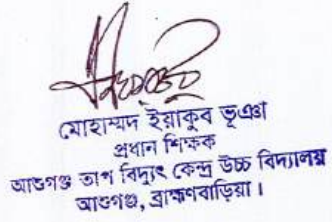 মোহাম্মদ ইয়াকুব ভূঞা
প্রধান শিক্ষক
আশুগঞ্জ তাপ বিদ্যুৎ কেন্দ্র উচ্চ বিদ্যালয়
আশুগঞ্জ, ব্রাহ্মণবাড়িয়া।